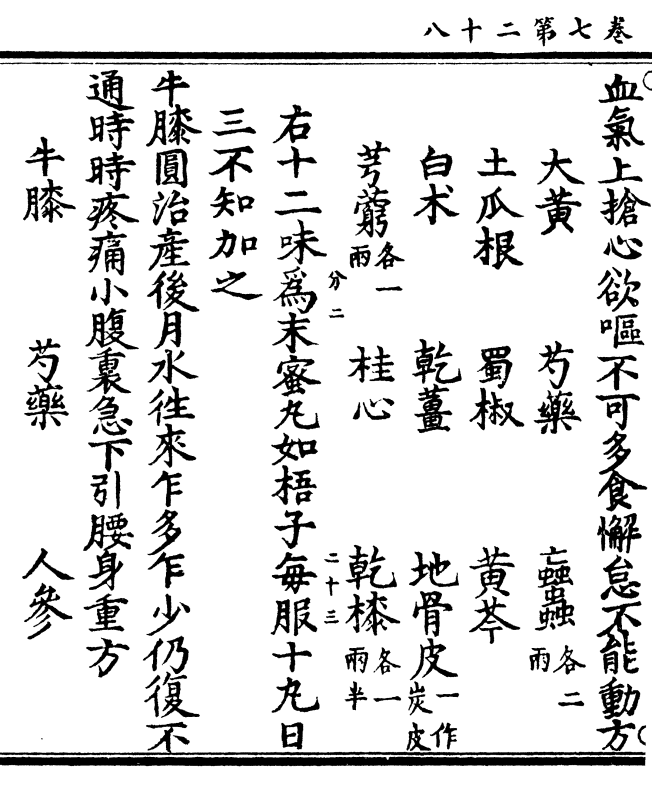 卷七第二十八
血氣上搶心欲嘔不可多食懈怠不能動方
大黃　芍藥　蝱蟲各二兩
土瓜根　蜀椒　黃芩
白术　乾薑　地骨皮一作炭皮
芎藭各一兩　桂心　乾㯃各一兩半
分二
二十三
右十二味爲末蜜丸如梧子每服十丸日
三不知加之
牛膝圓治產後月水往來乍多乍少仍復不
通時時疼痛小腹裏急下引腰身重方
牛膝　芍藥　人參